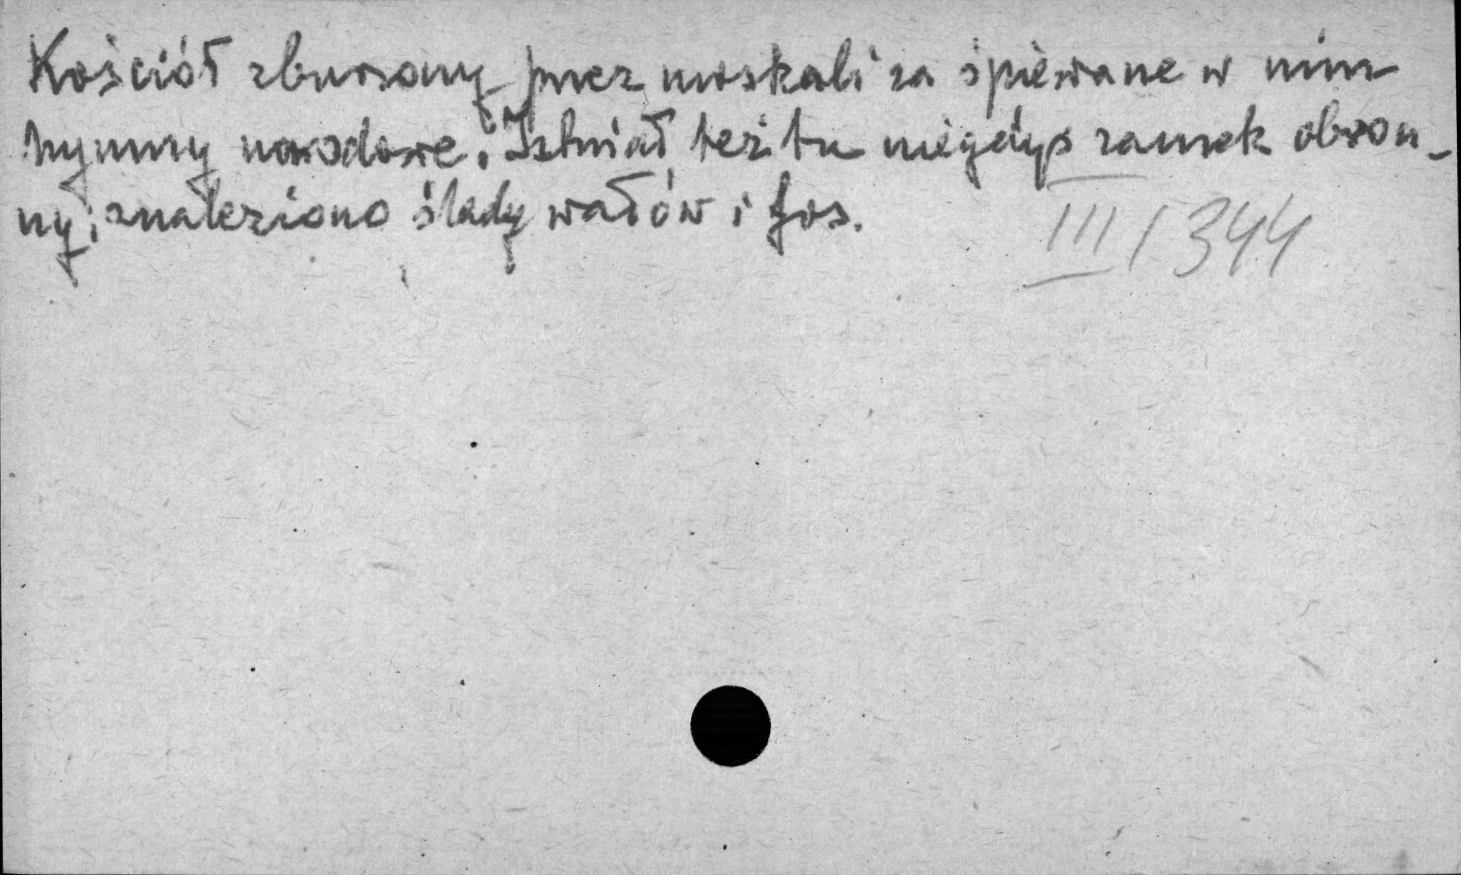 Kościół zburzony przez moskali za śpiewane w nim
hymny narodowe. Istniał też tu niegdyś zamek obron-
ny, znaleziono ślady wałów i fos.
III/344